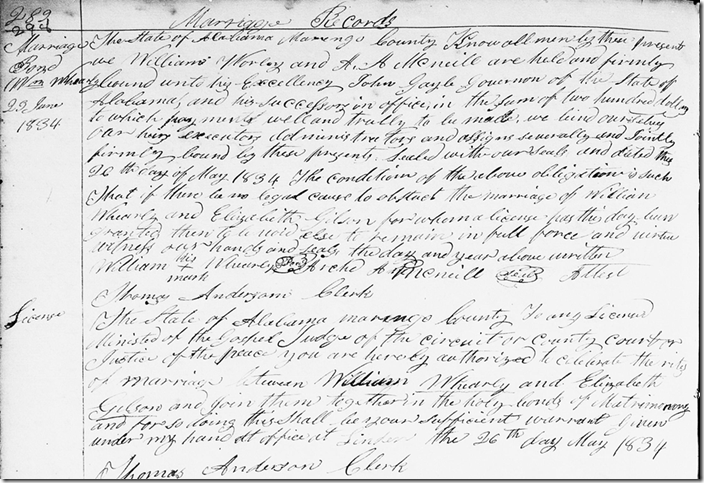 282
Marriage Records
Marriage
Bond
Wm Whearly
29 June
1834
The State of Alabama Marengo County Know all men by these present
we William Worley and A. A. McNeill are held and firmly
bound unto his Excellency John Gayle Governor of the State of
Alabama, and his successors in office, in the sum of two hundred dollars
to which payment well and trully to be made, we bind ourselves
our heirs executors administrators and assigns severally and Jointly
firmly bound by these presents. Sealed with our seals and dated this
26th day of May 1834 The condition of the above obligation is such
That if there be no legal cause to obstruct the marriage of William
Whearly and Elizabeth Gilson for whom a license has this day been
granted then to be void else to remain in full force and virtue
witness our hands and seals the day and year above written
William his + mark Whearly Seal Archd A McNeill Seal Attest
Thomas Anderson Clerk
License
The State of Alabama marengo County To any License
Minister of the Gospel Judge of the circuit or County court or
Justice of the peace you are hereby authorized to celebrate the rites
of marriage between William Whearly and Elizabeth
Gilson and join them together in the holy bonds of Matrimony
and for so doing this shall be your sufficient warrant given
under my hand at office at Linden the 26th day May 1834
Thomas Anderson Clerk